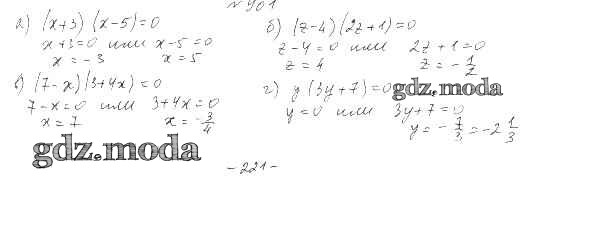 № 901
а) (x+3) (x-5)=0
x+3=0 или x-5=0
x = -3 x = 5
б) (z-4)(2z+1)=0
z-4=0 или 2z+1=0
z = 4 z = -1/2
в) (7-x)(3+4x)=0
7-x=0 или 3+4x=0
x = 7 x = -3/4
г) y (3y+7)=0
y=0 или 3y+7=0
y = -7/3 = -2 1/3
gdz.moda
gdz.moda
-221-